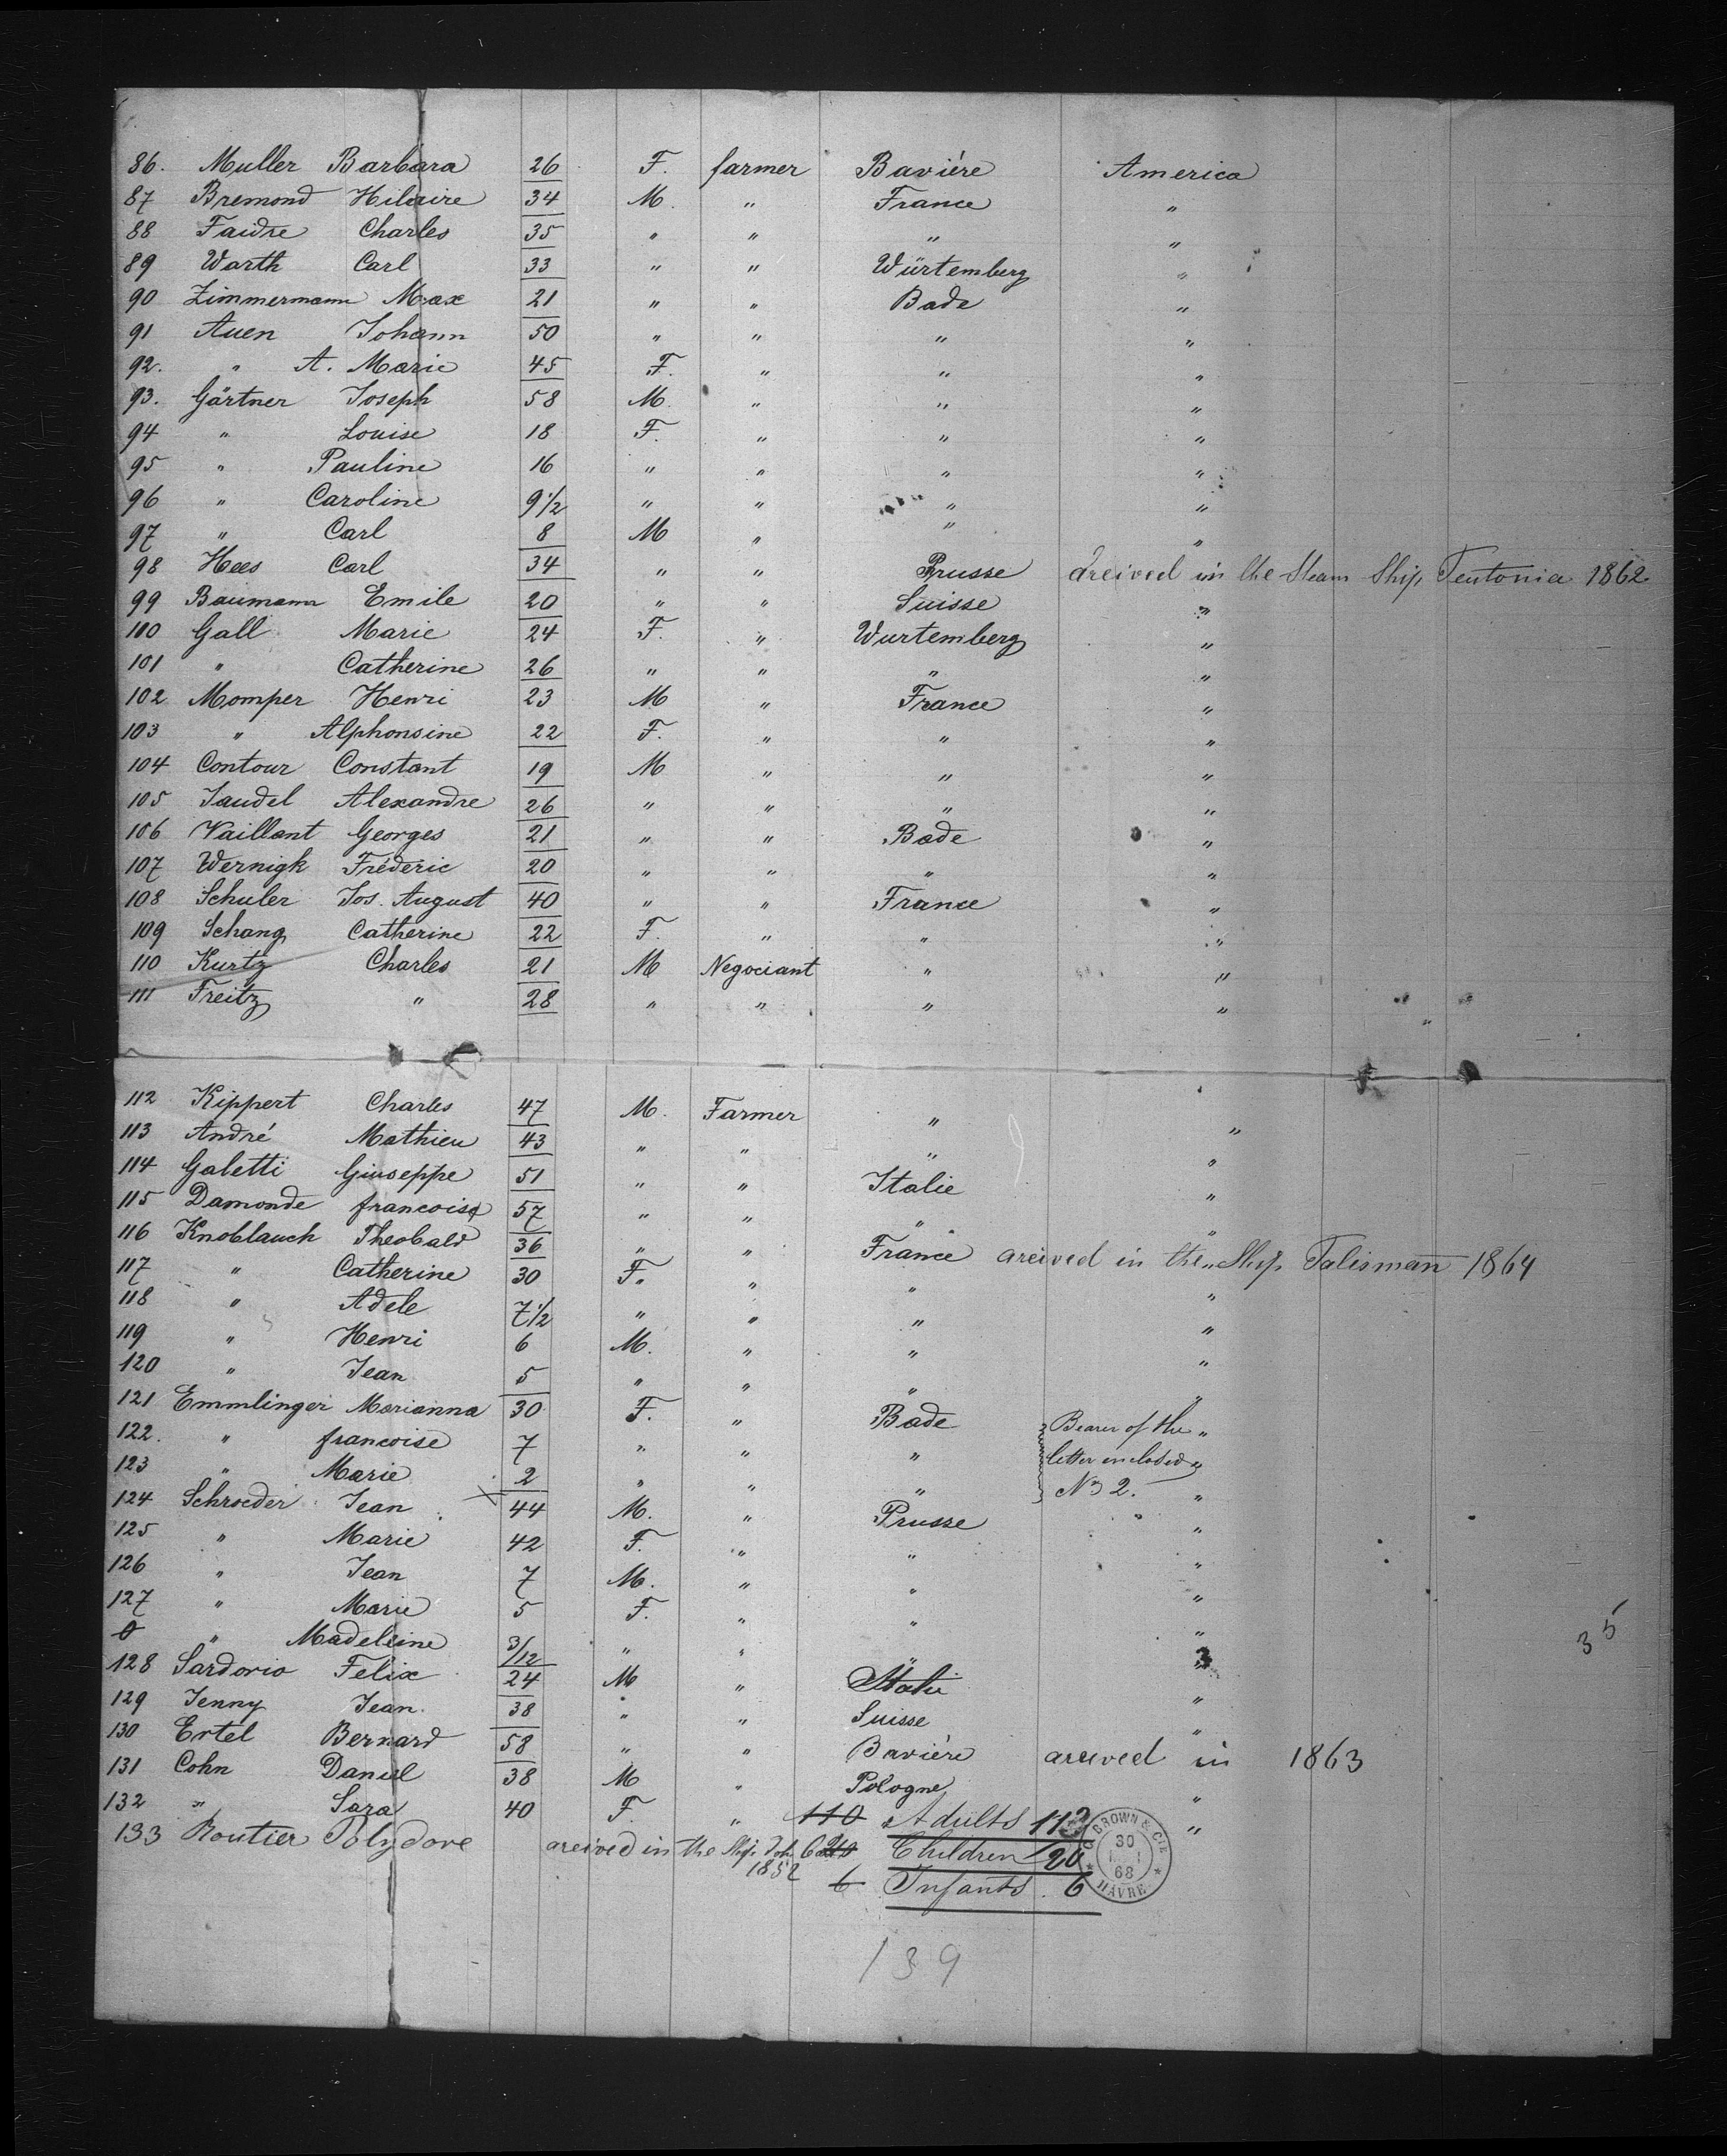 86. Muller Barbara 26 F. farmer Bavière America
87 Bremond Hilaire 34 M. " " France "
88 Faidre Charles 35 " " " "
89 Warth Carl 33 " " Würtemberg "
90 Zimmermann Max 21 " " Bade "
91 Auen Johann 50 " " " "
92. " A. Marie 45 F. " " "
93. Gärtner Joseph 58 M. " " "
94 " Louise 18 F. " " "
95 " Pauline 16 " " " "
96 " Caroline 9 1/2 " " " "
97 " Carl 8 M " " "
98 Hees Carl 34 " " Prusse areived in the Steam Ship Teutonia 1862
99 Baumann Emile 20 " " Suisse "
100 Gall Marie 24 F. " Wurtemberg "
101 " Catherine 26 " " " "
102 Momper Henri 23 M " France "
103 " Alphonsine 22 F. " " "
104 Contour Constant 19 M " " "
105 Jaudel Alexandre 26 " " " "
106 Vaillant Georges 21 " " Bade "
107 Wernigk Fréderic 20 " " " "
108 Schuler Jos. August 40 " " France "
109 Schang Catherine 22 F. " " "
110 Kurtz Charles 21 M Negociant " "
111 Freitz " 28 " " " "
112 Kippert Charles 47 M. Farmer " "
113 André Mathieu 43 " " " "
114 Galetti Giuseppe 51 " " Italie "
115 Damonde francoise 57 " " " "
116 Knoblauch Theobald 36 " " France areived in the Ship Talisman 1864
117 " Catherine 30 F. " " "
118 " Adele 7 1/2 " " " "
119 " Henri 6 M. " " "
120 " Jean 5 " " " "
121 Emmlinger Marianna 30 F. " Bade Bearer of the "
122. " francoise 7 " " " letter enclosed "
123 " Marie 2 " " " No 2. "
124 Schroeder Jean 44 M. " Prusse "
125 " Marie 42 F. " " "
126 " Jean 7 M. " " "
127 " Marie 5 F. " " "
0 " Madeleine 3/12 " " " "
128 Sardorio Felix 24 M " Italie "
129 Jenny Jean. 38 " " Suisse "
130 Ertel Bernard 58 " " Bavière areived in 1863
131 Cohn Daniel 38 M " Pologne "
132 " Sara 40 F. " 110 Adults 113 "
133 Routier Polydore areived in the Ship Children 20
1852 6 Infants. 6
BROWN & CIE
30
68
HAVRE
139
35